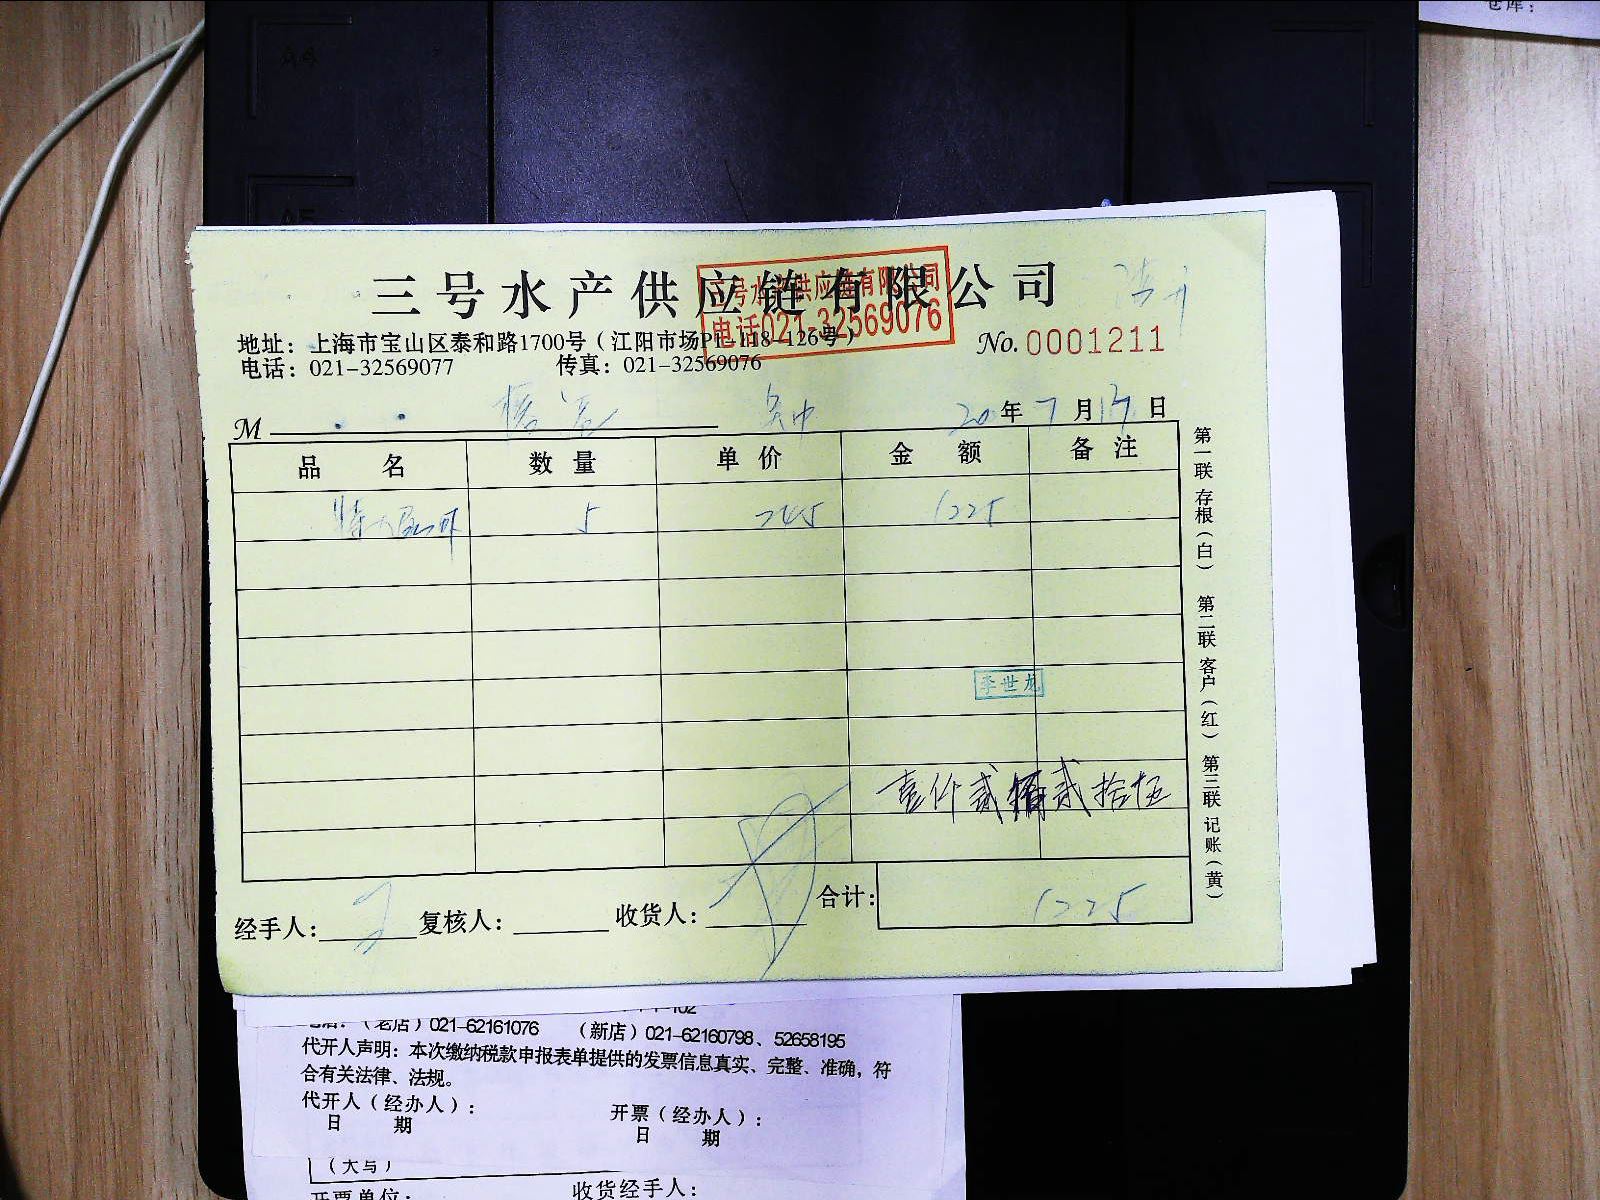 仓库：
A4
A5
三号水产供应链有限公司
三号水产供应链有限公司
电话021-32569076
地址：上海市宝山区泰和路1700号（江阳市场P1-118-126号）
电话：021-32569077 传真：021-32569076
No. 0001211
M 吴中 20年7月17日
品名 数量 单价 金额 备注
5 245 1225
李世龙
壹仟贰佰贰拾伍
合计： 1225
经手人： 复核人： 收货人：
第一联 存根（白） 第二联 客户（红） 第三联 记账（黄）
（老店）021-62161076 （新店）021-62160798、52658195
代开人声明：本次缴纳税款申报表单提供的发票信息真实、完整、准确，符
合有关法律、法规。
代开人（经办人）： 开票（经办人）：
日期 日期
（大写）
开票单位： 收货经手人：